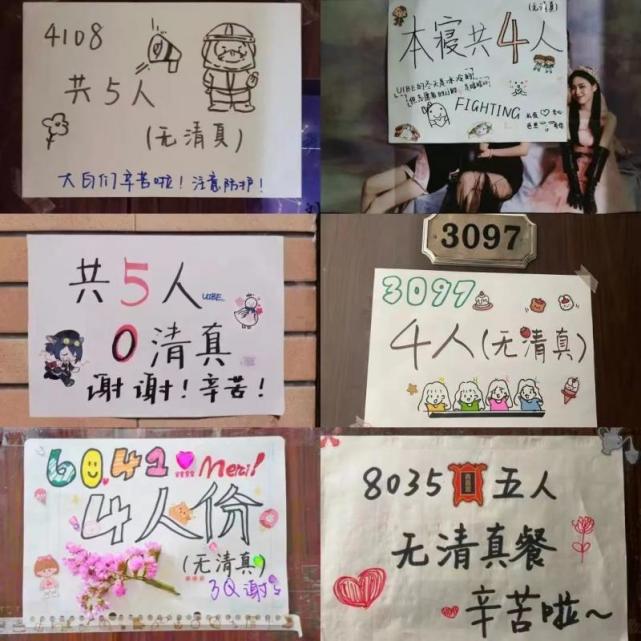 4108
共5人
(无清真)
大白们辛苦啦！注意防护！
(无清真)
本寝共4人
UIBE的冬天是冰冷的
FIGHTING
共5人
UIBE
0清真
谢谢！辛苦！
3097
3097
4人(无清真)
6041 Merci!
4人份
(无清真)
3Q谢谢
8035 五人
无清真餐
辛苦啦~